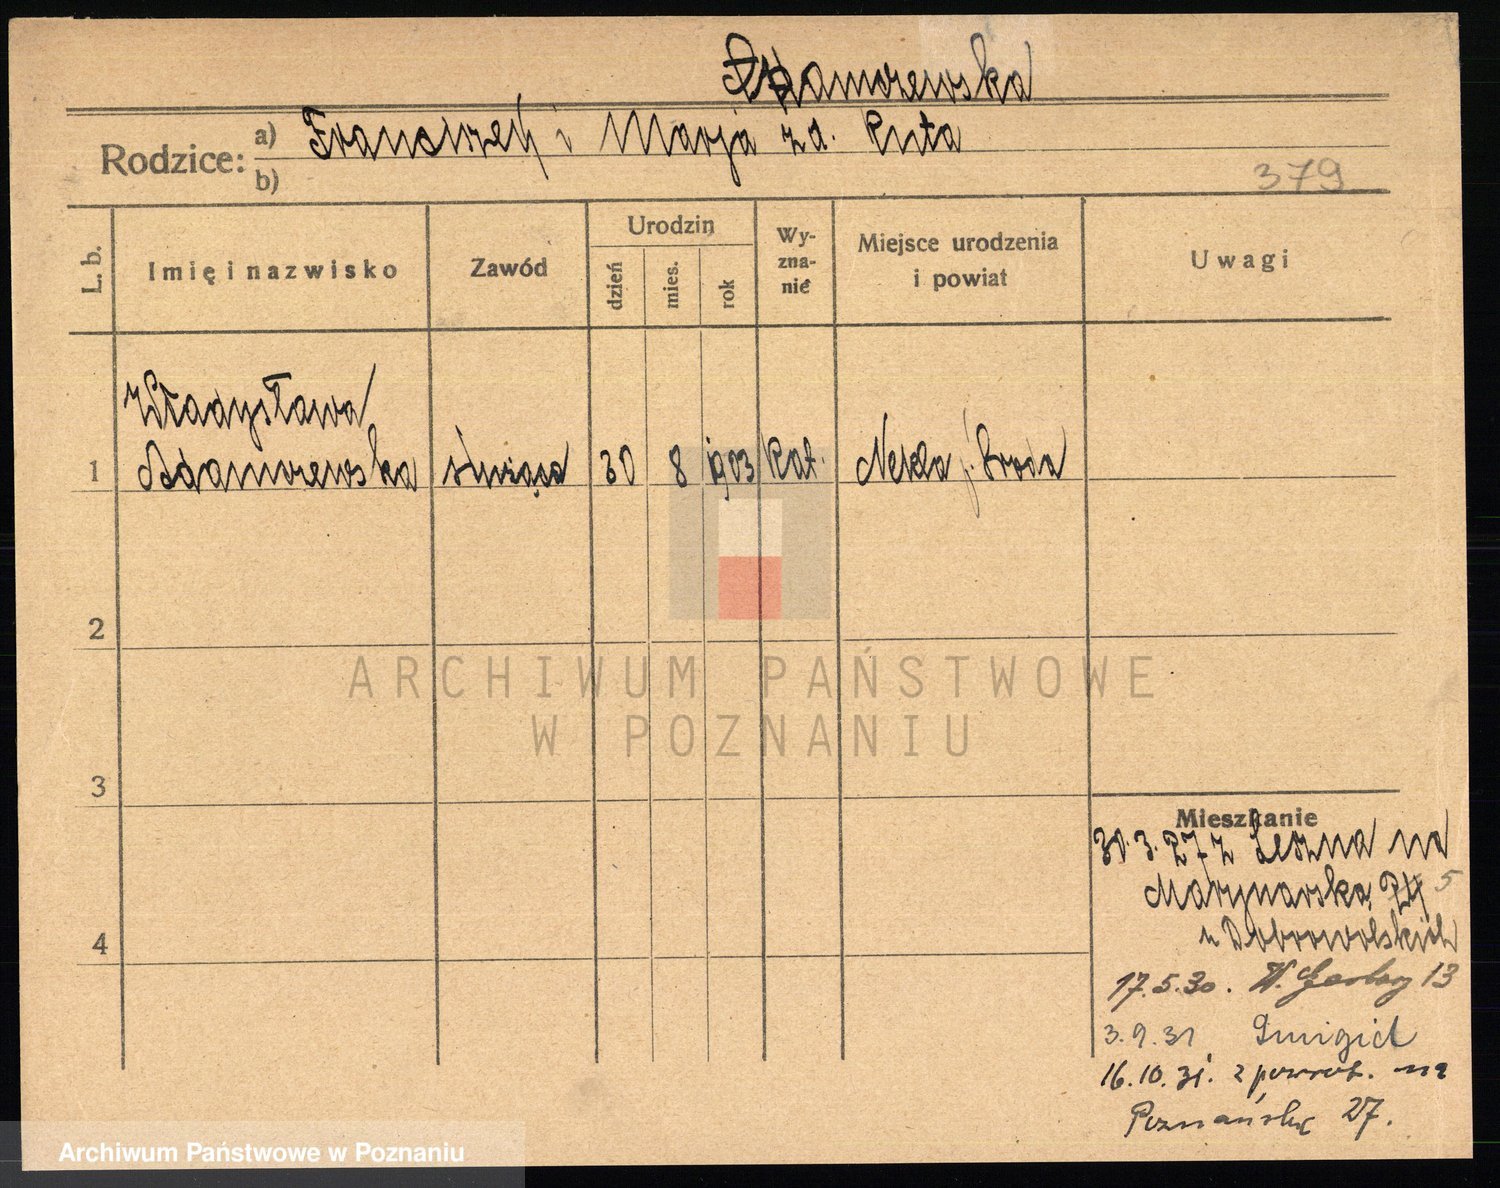 Adamorewska
Rodzice: a) Franciszek i Marja z d. Ruta
b)
379
L. b.
Imię i nazwisko
Zawód
Urodzin
dzień
mies.
rok
Wy-
zna-
nie
Miejsce urodzenia
i powiat
Uwagi
Władysława
1 Adamorewska służąca 30 8 1903 kat. Nekla p. Środa
2
3
4
Mieszkanie
30.3.27 z Leszna na
Marynarską 5
u Dobrowolskich
17.5.30. W. Garbary 13
3.9.31 Śmigiel
16.10.31. z powrot. na
Poznańską 27.
ARCHIWUM PAŃSTWOWE
W POZNANIU
Archiwum Państwowe w Poznaniu